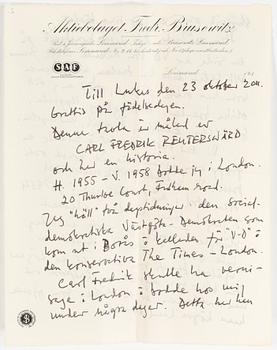 Aktiebolaget Fredr. Brusewitz
SAF
Limmared
Till Lukas den 23 oktober 2011.
Grattis på födelsedagen.
Denna tavla är målad av
CARL FREDRIK REUTERSWÄRD
och har en historia.
H. 1955 – V. 1958 bodde jag i London.
20 Thurloe Court, Fulham Road.
Jag "höll" två dagstidningar den social-
demokratiska Västgöta-Demokraten som
kom ut i Borås och kallades för "V-D" o
den konservativa The Times – London.
Carl Fredrik skulle ha vernis-
sage i London o bodde hos mig
under några dagar. Detta har han